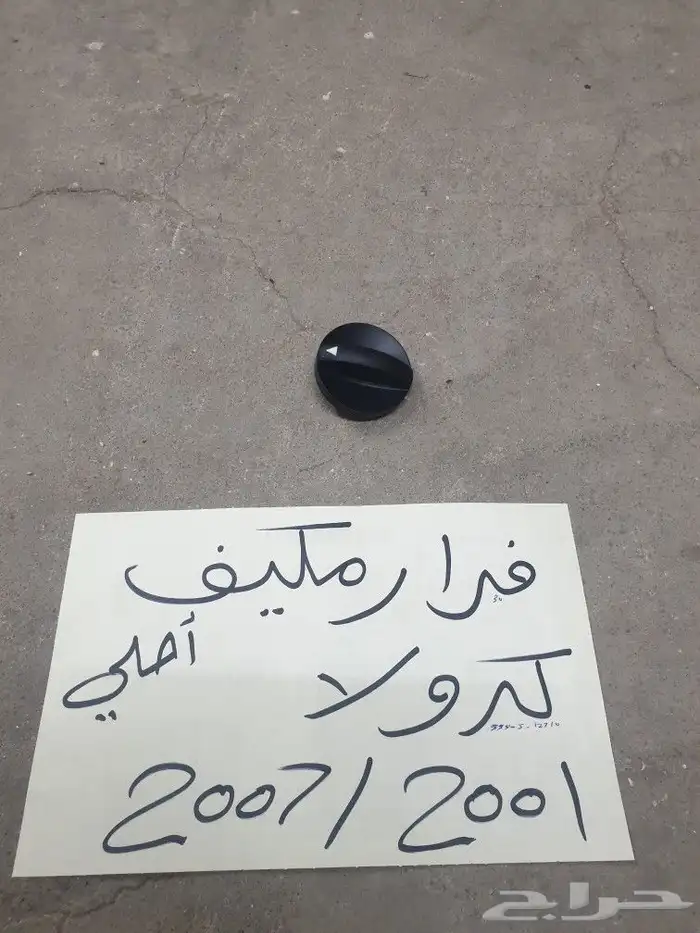 فرار مكيف
كرولا أصلي
2007/2001
حراج